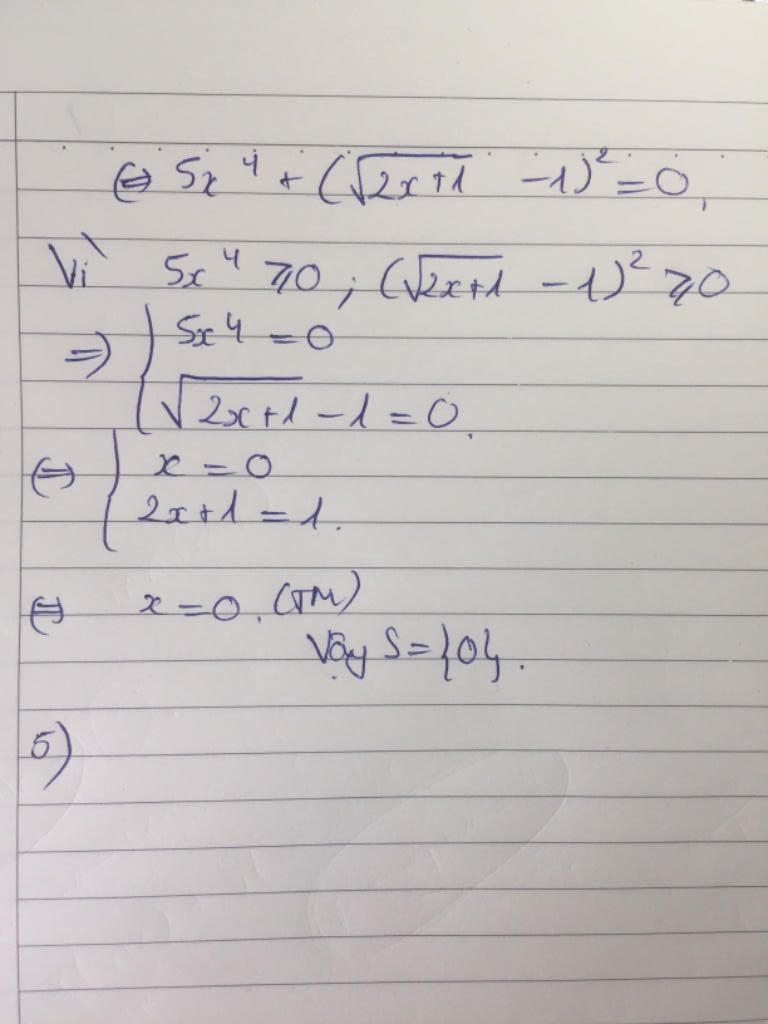 ⇔ 5x⁴ + (√(2x+1) - 1)² = 0.
Vì 5x⁴ ⩾ 0 ; (√(2x+1) - 1)² ⩾ 0
⇒ { 5x⁴ = 0
√(2x+1) - 1 = 0.
⇔ { x = 0
2x+1 = 1.
⇔ x = 0. (TM)
Vậy S = {0}.
5)